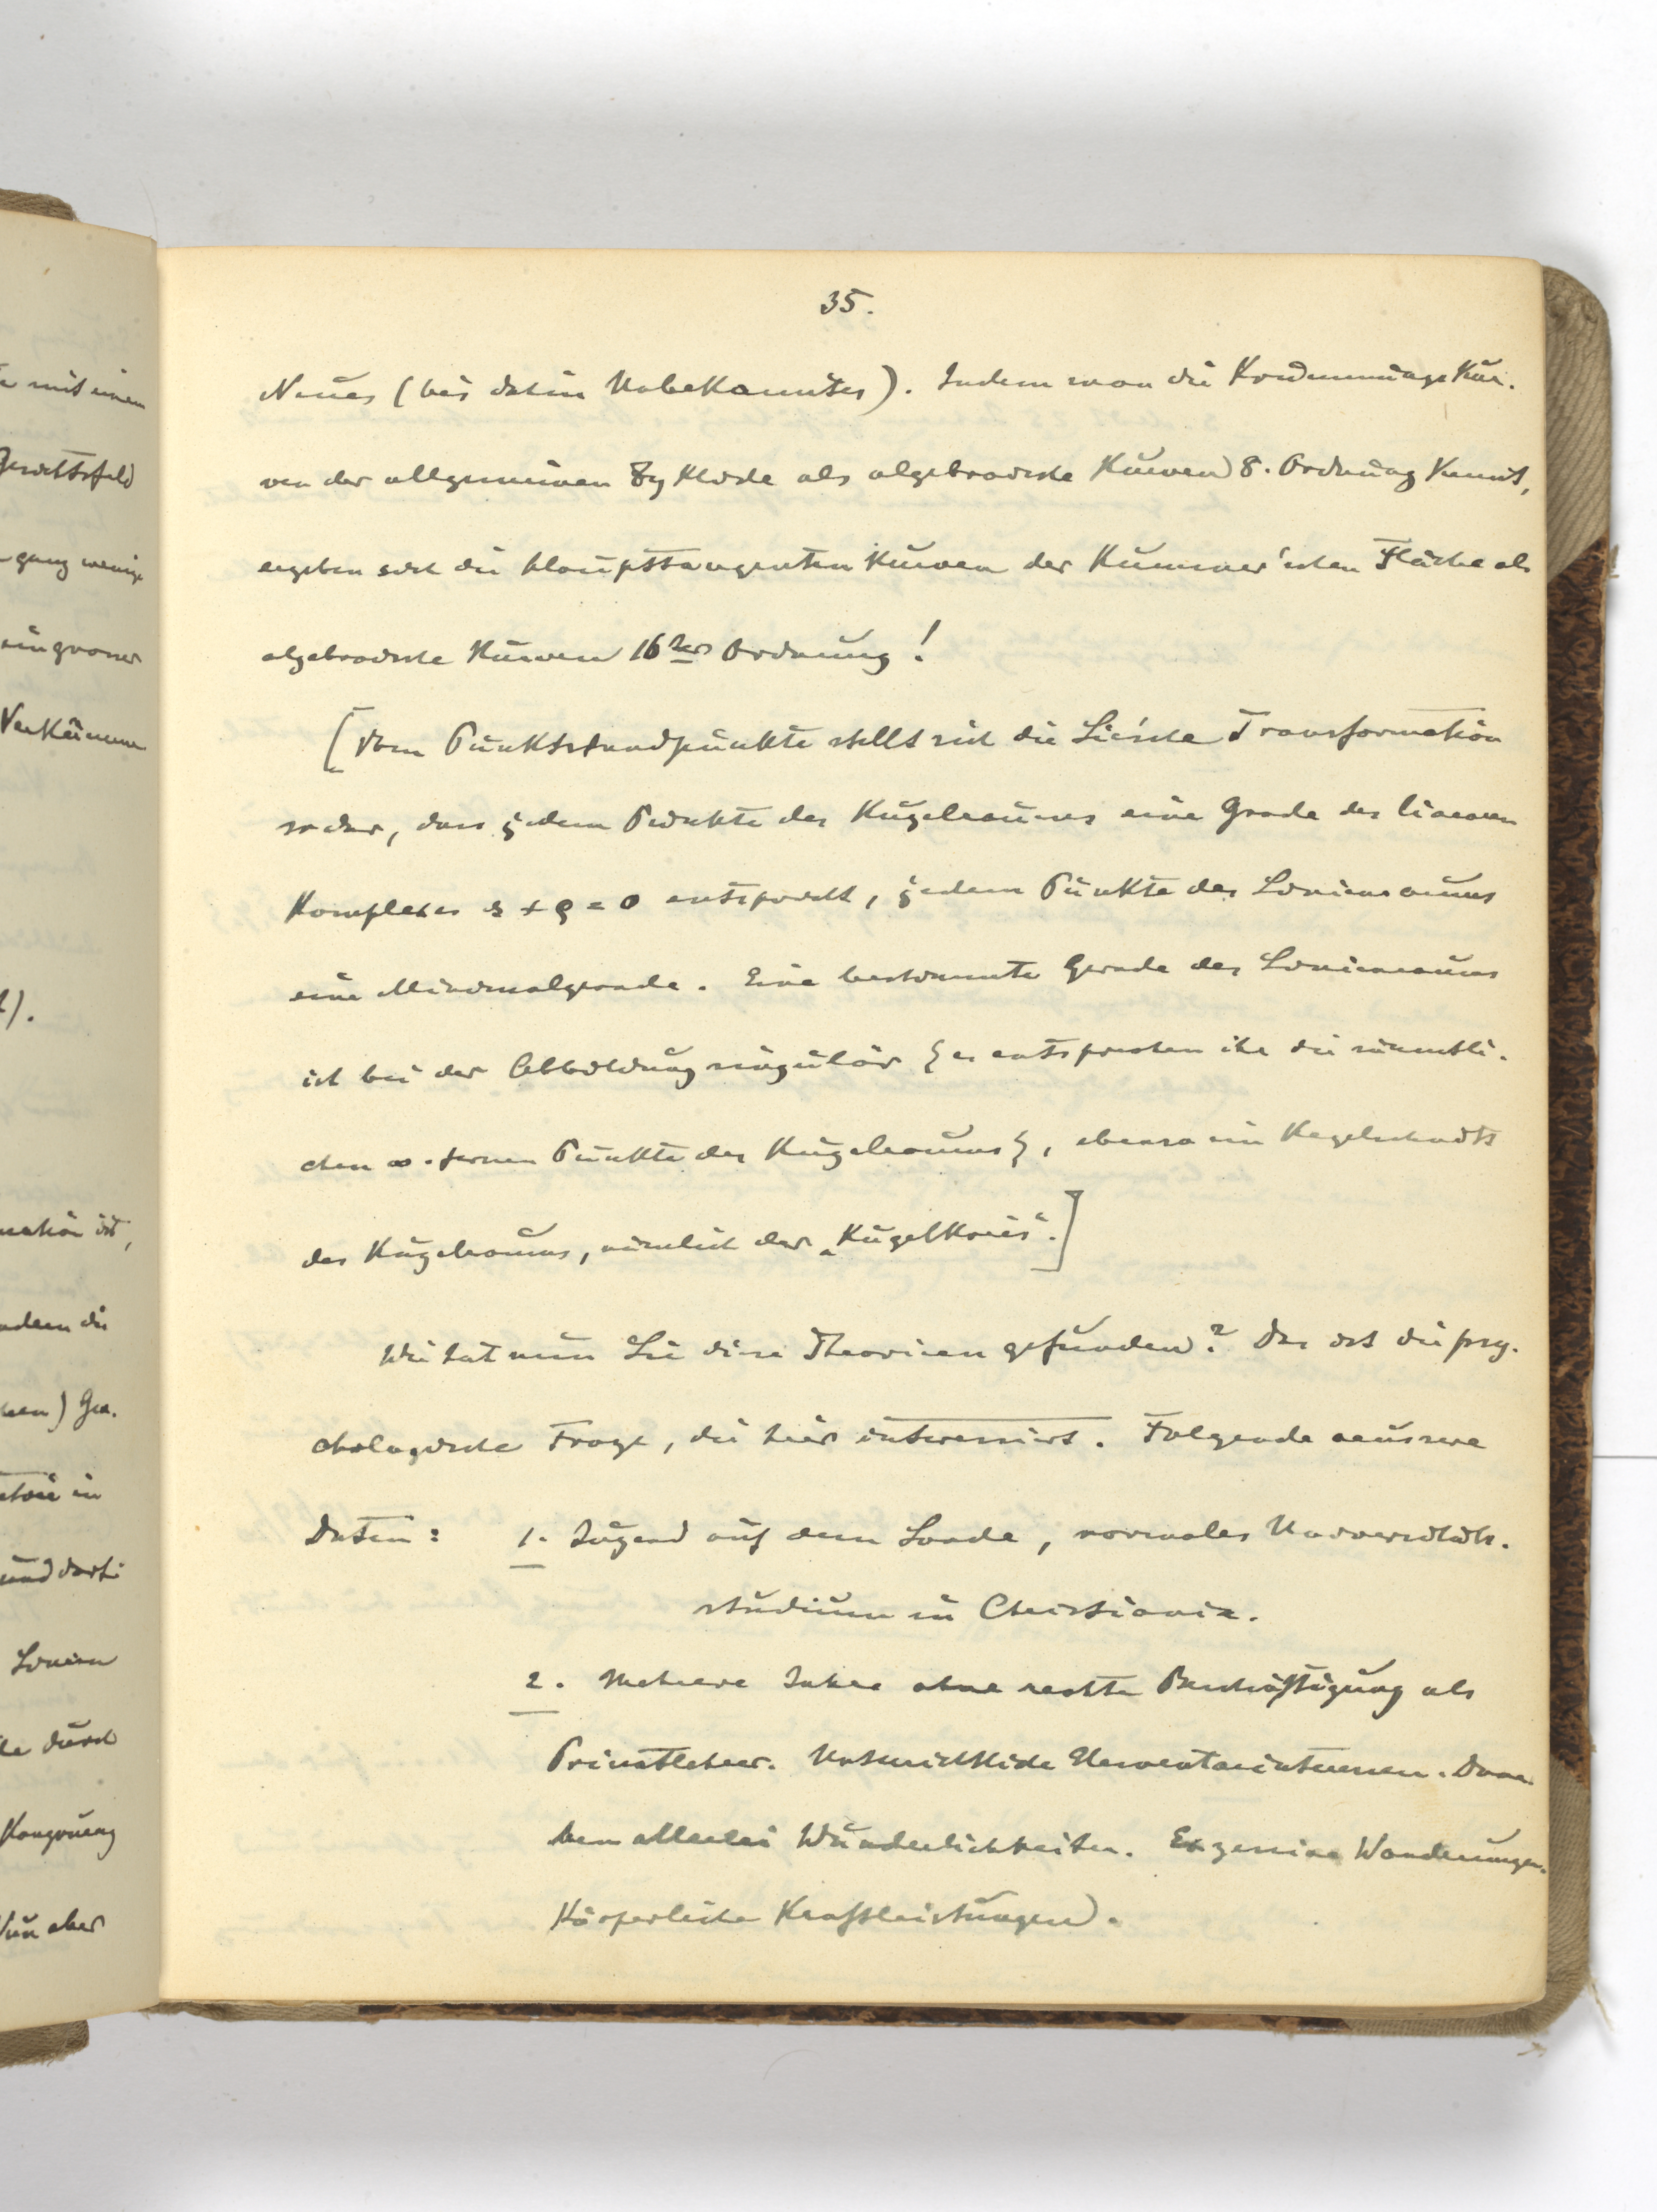 35.
Neues (bis dahin Unbekanntes). Indem man die Krümmungskur-
ven der allgemeinen Zyklide als algebraische Kurven 8. Ordnung kennt,
ergeben sich die Haupttangentenkurven der Kummer'schen Fläche als
algebraische Kurven 16ter Ordnung!
[Vom Punktstandpunkte stellt sich die Lie'sche Transformation
so dar, dass jedem Punkte des Kugelraumes eine Grade des linearen
Komplexes s + ϱ = 0 entspricht, jedem Punkte des Linienraumes
eine Minimalgerade. Eine bestimmte Gerade des Linienraumes
ist bei der Abbildung singulär {es entsprechen ihr die sämmtli-
chen ∞-fernen Punkte des Kugelraumes}, ebenso ein Kegelschnitt
des Kugelraumes, nämlich der „Kugelkreis“.]
Wie hat nun Lie diese Theorieen gefunden? Das ist die psy-
chologische Frage, die hier interessirt. Folgende aeussere
Daten: 1. Jugend auf dem Lande, normales Universitäts-
studium in Christiania.
2. Mehrere Jahre ohne rechte Beschäftigung als
Privatlehrer. Unterrichtliche Elementarinteressen. Dane-
ben allerlei Wunderlichkeiten. Exzessive Wanderungen.
Körperliche Kraftleistungen.
mit einem
ganz wenige
Verkümme
).
mation ist,
indem die
) Geo-
in
und darf
Linien
durch
Kongruenz
Nun aber